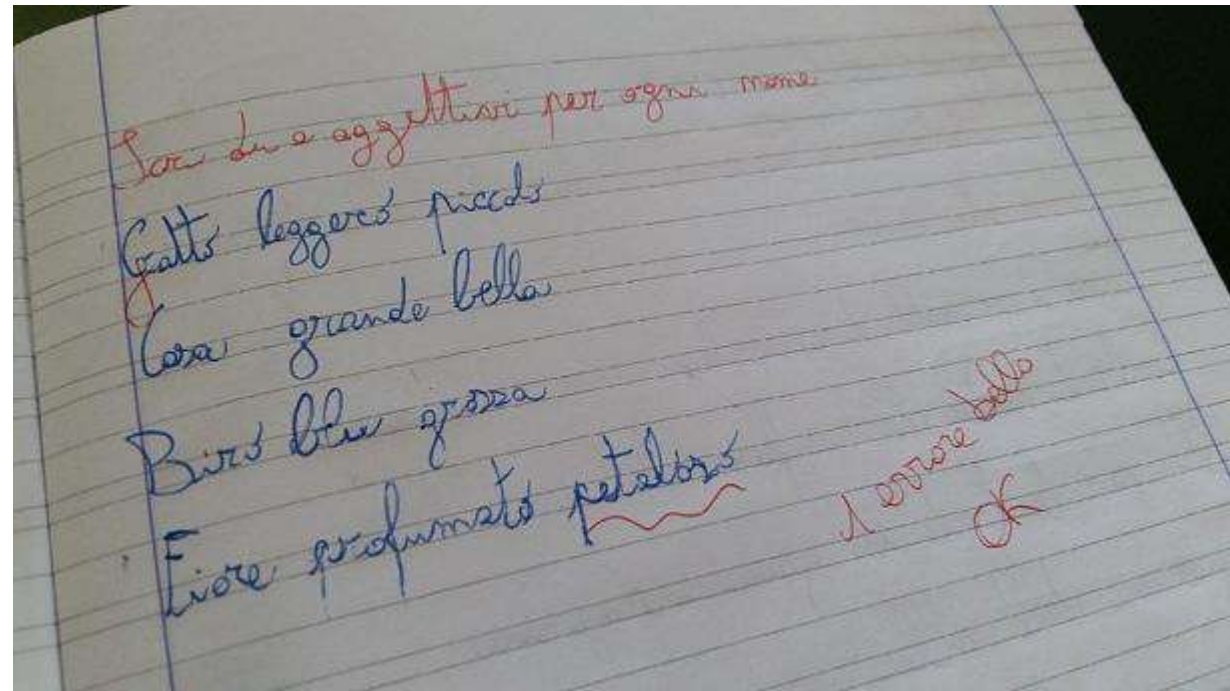 Scrivi due aggettivi per ogni nome
Gatto leggero piccolo
Casa grande bella
Biro blu grossa
Fiore profumato petaloso
1 errore bello
OK